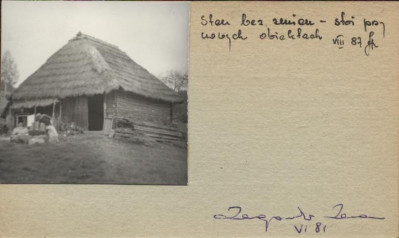 Stan bez zmian - stoi przy
nowych obiektach VIII 87
VI 81